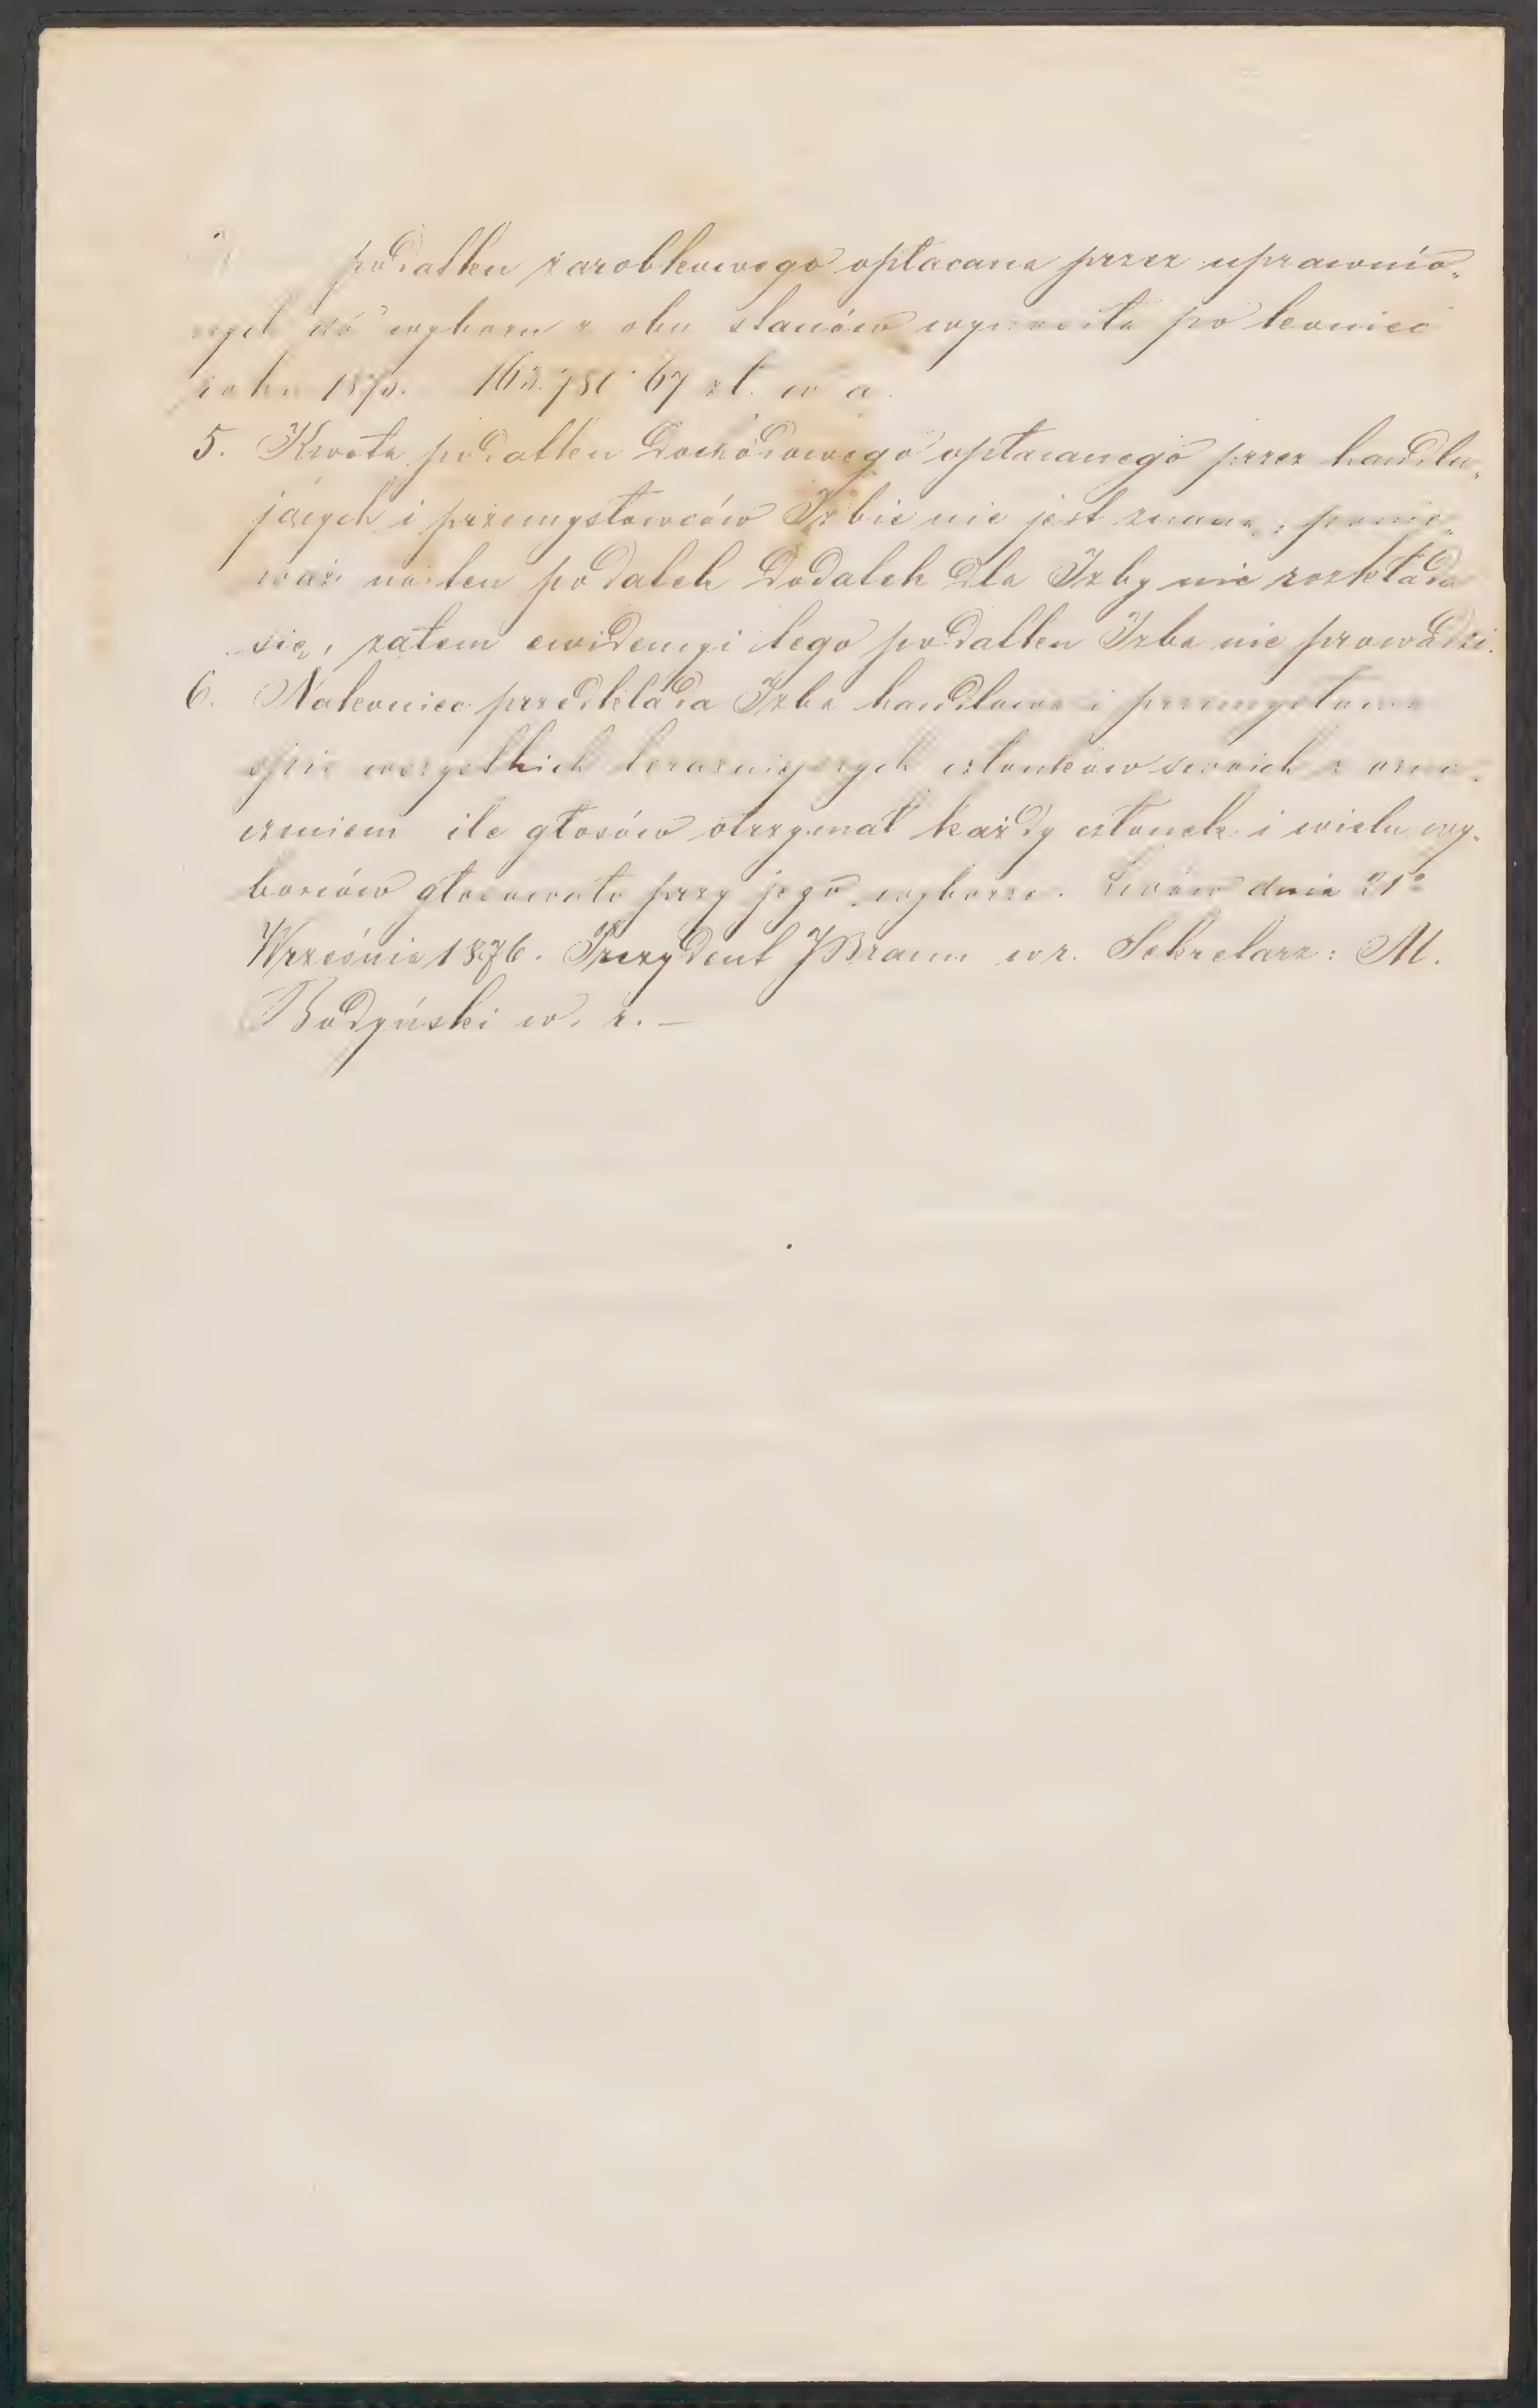 podatku zarobkowego opłacana przez uprawnio„
nych do wyboru z obu stanów wynosiła po koniec
roku 67 zł. w a.
5. Kwota podatku dochodowego opłacanego przez handlu„
jących i przemysłowców Izbie nie jest znana, ponie„
waż na ten podatek dodatek dla Izby nie rozkłada
się, zatem ewidencyi tego podatku Izba nie prowadzi.
6. Nakoniec przedkłada Izba handlowa i przemysłowa
spis wszystkich terazniejszych członków swoich z ozna„
czeniem ile głosów otrzymał każdy członek i wielu wy„
borców głosowało przy jego wyborze. Lwów dnia 21º
Września 1876. Prezydent JBraun w r. Sekretarz: M.
Bodyński w. r. —